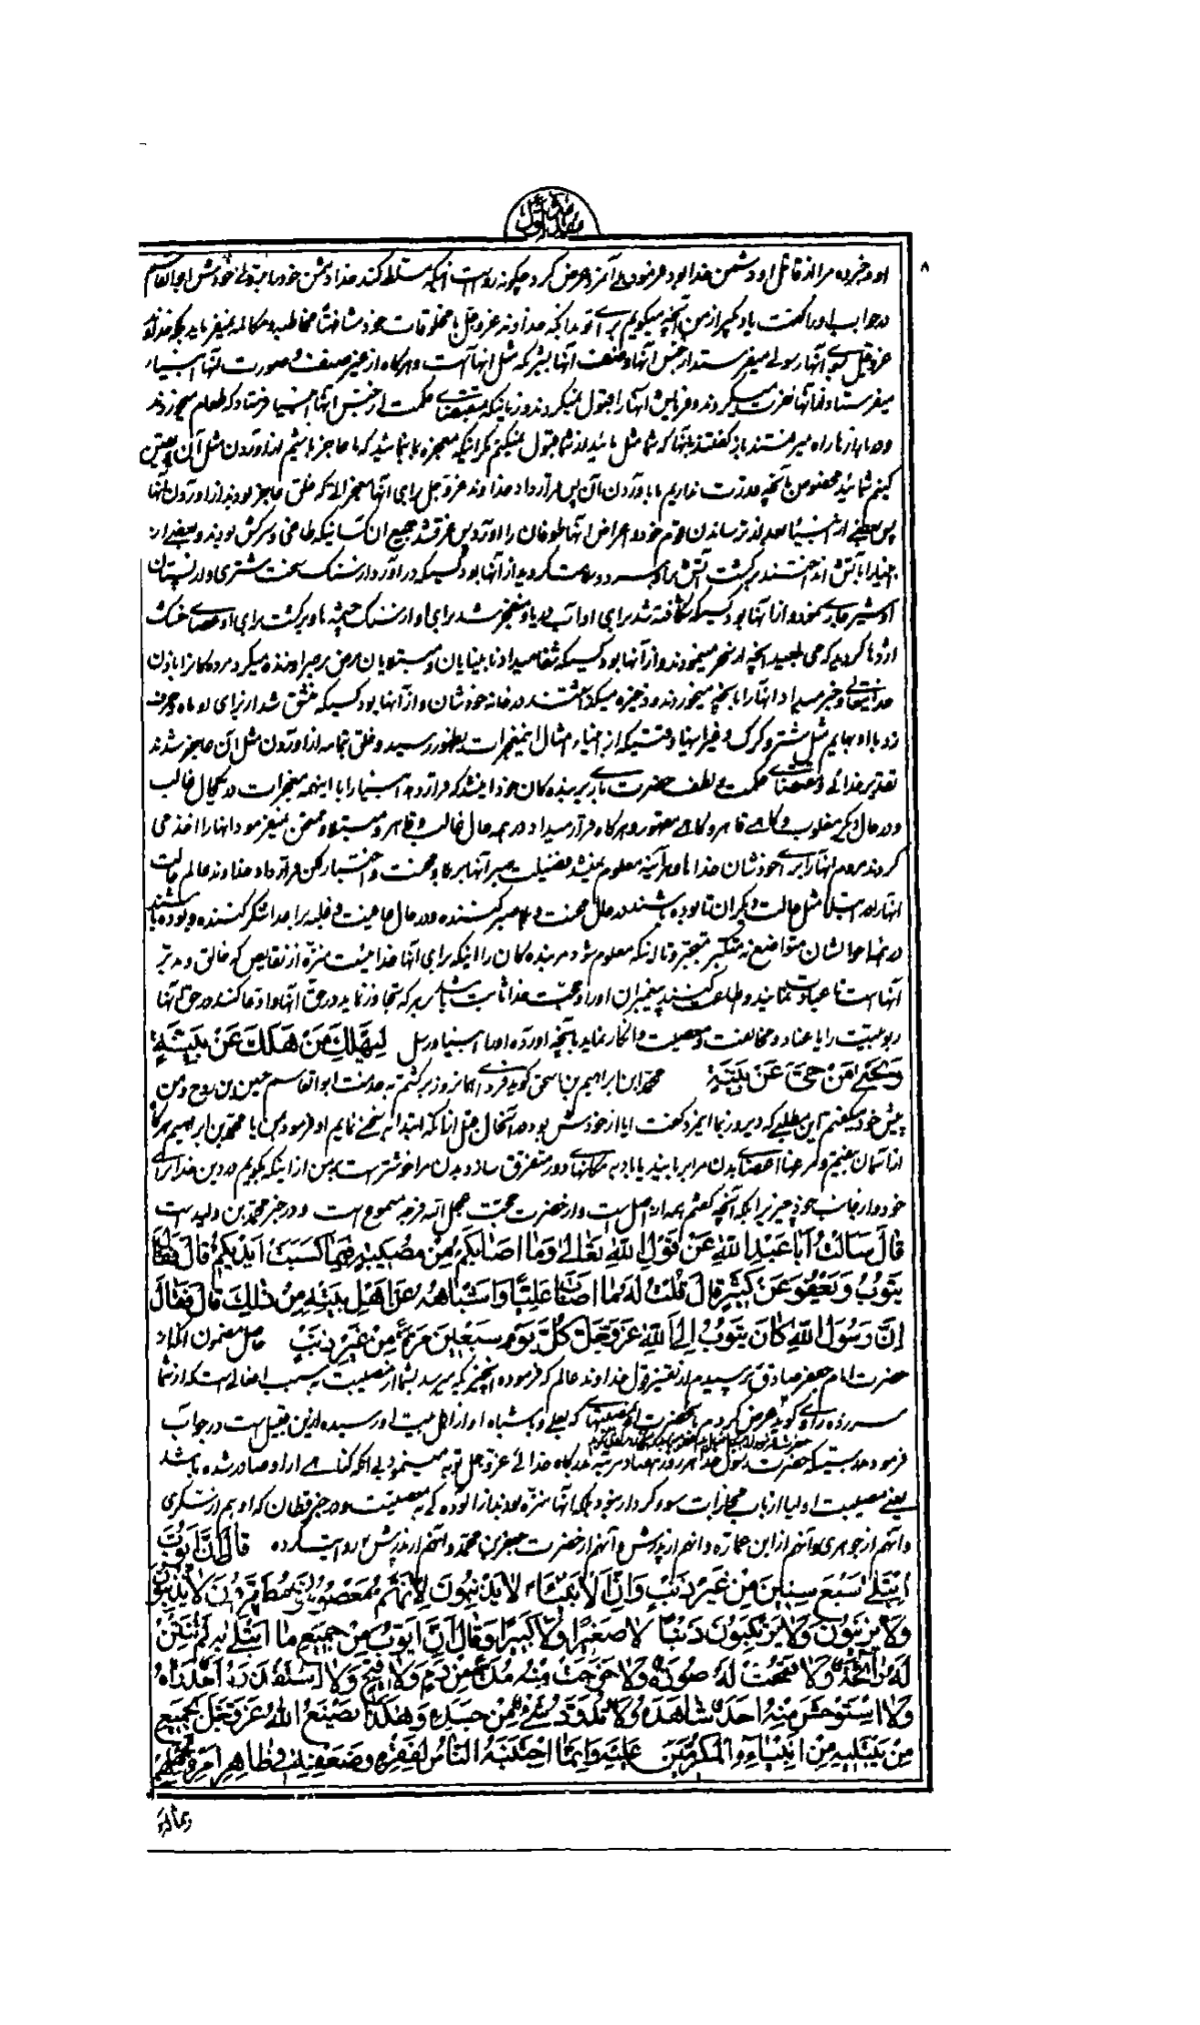 مقدمه اول
۸
او و خبر ده مرا از قاتل او دشمن خدا بود فرمود بلی آنمرد عرض کرد چگونه رواست اینکه مسلط کند خدا دشمن خود را بر دوست خودش ابوالقاسم
در جواب او گفت یاد گیر از من آنچه میگویم برای تو بدانکه خداوند عزوجل با مخلوقات خود مشافهة مخاطبه و مکالمه نمیفرماید بلکه خداوند
عزوجل بسوی آنها رسولی میفرستد از جنس آنها و صنف آنها بشر که مثل آنها است و هرگاه از غیر صنف و صورت آنها انبیاء
میفرستاد از آنها نفرت میکردند و فرمایش آنها را قبول نمیکردند و زمانیکه بمقتضای حکمت از جنس آنها انبیا فرستاد که طعام میخوردند
و در بازارها راه میرفتند باز گفتند بآنها که شما مثل مائید از شما قبول نمیکنیم مگر اینکه معجزه بما بنمائید که ما عاجز باشیم از آوردن مثل آن پس یقین
کنیم شمائید مخصوص بآنچه قدرت نداریم ما بآوردن آن پس قرار داد خداوند عزوجل برای آنها معجزاتی که خلق عاجز بودند از آوردن آنها
پس بعضی از انبیا بعد از ترساندن قوم خود و اعراض آنها طوفان را آورد پس غرق شد جمیع آن کسانیکه طاغی و سرکش بودند و بعضی از
انبیا را بآتش انداختند برگشت آتش بر او سرد و سلامت گردید و از آنها بود کسیکه در آورد از سنگ سخت شتری و از پستان
او شیر جاری نمود و از آنها بود کسیکه شکافته شد برای او آب دریا و منفجر شد برای او از سنگ چشمه ها و برگشت برای او عصای خشک
اژدها گردید که می بلعید آنچه از سحر مینمودند و از آنها بود کسیکه شفا میداد نابینایان و مبتلایان مرض برص را و زنده میکرد مردگان را باذن
خدایتعالی و خبر میداد آنها را بآنچه میخوردند و ذخیره میکردند در خانه خودشان و از آنها بود کسیکه منشق شد از برای او ماه و حرف
زد با او بهایم مثل شتر و گرگ و غیر اینها وقتیکه از انبیاء امثال این معجزات بظهور رسید و خلق تمامه از آوردن مثل آن عاجز شدند
تقدیر خدائی و مقتضای حکمت و لطف حضرت باری بر بندگان خود این شد که قرار دهد انبیا را با اینهمه معجزات در یکحال غالب
و در حال دیگر مغلوب و گاهی قاهر و گاهی مقهور و هرگاه قرار میداد در همه حال غالب و قاهر و مبتلا و ممتحن نمیفرمود آنها را اخذ می
کردند مردم آنها را برای خودشان خدا و هر آینه معلوم نمیشد فضیلت صبر آنها بر بلا و محنت و اختبار لکن قرار داد خداوند عالم حالت
آنها را در ابتلا مثل حالت دیگران تا بوده باشند در حال محنت و بلا صبر کننده و در حال عافیت و غلبه بر اعدا شکر کننده و بوده باشند
در تمام احوالشان متواضع نه متکبر متجبر و تا اینکه معلوم شود مر بندگان را اینکه برای آنها خدائیست منزه از نقایص که خالق و مدبر
آنها است تا عبادت نمایند و اطاعت کنند پیغمبران او را و حجت خدا ثابت باشد بر هر که تجاوز نماید در حق آنها و ادعا کند در حق آنها
ربوبیت را یا عناد و مخالفت و معصیت و انکار نماید بآنچه آورده اند انبیا و رسل لِيَهْلِكَ مَنْ هَلَكَ عَنْ بَيِّنَةٍ
وَيَحْيٰى مَنْ حَيَّ عَنْ بَيِّنَةٍ محمد ابن ابراهیم بن اسحق گوید فردای آنروز برگشتم به خدمت ابوالقاسم حسین بن روح و من
پیش خود میگفتم این مطلبی که دیروز بما بیان کرد گفت ایا از خودش بود در آنحال قبل از آنکه ابتدا به سخن نمایم او فرمود بمن یا محمد بن ابراهیم هرگاه
از آسمان بیفتم و مرغها اعضای بدن مرا بربایند یا باد به مکانهای دور متفرق سازد بدن مرا خوشتر است بر من از اینکه بگویم در دین خدا برای
خود و از جانب خود چیزی را بلکه آنچه گفتم همه از اصل است و از حضرت حجت عجل الله فرجه مسموع است و در خبر محمد بن ولید است
قَالَ سَأَلْتُ أَبَا عَبْدِ اللهِ عَنْ قَوْلِ اللهِ تَعَالٰى وَمَا أَصَابَكُمْ مِنْ مُصِيبَةٍ فَبِمَا كَسَبَتْ أَيْدِيكُمْ قَالَ فَقَالَ
يَتُوبُ وَيَعْفُو عَنْ كَثِيرٍ قَالَ قُلْتُ لَهُ مَا أَصَابَ عَلِيًّا وَأَشْبَاهَهُ مِنْ أَهْلِ بَيْتِهِ مِنْ ذٰلِكَ قَالَ فَقَالَ
إِنَّ رَسُولَ اللهِ كَانَ يَتُوبُ إِلَى اللهِ عَزَّ وَجَلَّ كُلَّ يَوْمٍ سَبْعِينَ مَرَّةً مِنْ غَيْرِ ذَنْبٍ حاصل مضمون آنکه از
حضرت امام جعفر صادق پرسیدم از تفسیر قول خداوند عالم که فرموده آنچیز که میرسد بشما از مصیبت به سبب اعمالیست که از شما
سر زده راوی گوید عرض کردم بآنحضرت مصیبتهای که بعلی و اشباه او از اهل بیت او رسیده از این قبیل است در جواب
فرمود بدرستیکه حضرت رسول خدا هر روز هفتاد مرتبه بدرگاه خدای عزوجل توبه مینمود بی آنکه گناهی از او صادر شده باشد
یعنی مصیبت اولیا از باب مجازات سوء کردار نبود بلکه آنها منزه بودند از آلودگی به معصیت و در خبر قطان که او هم از سکری
و آنهم از جوهری و آنهم از ابن عماره و آنهم از پدرش و آنهم از حضرت جعفر بن محمد و آنهم از پدرش روایت کرده قَالَ إِنَّ أَيُّوبَ
ابْتُلِيَ سَبْعَ سِنِينَ مِنْ غَيْرِ ذَنْبٍ وَإِنَّ الْأَنْبِيَاءَ لَا يُذْنِبُونَ لِأَنَّهُمْ مَعْصُومُونَ مُطَهَّرُونَ لَا يُذْنِبُونَ
وَلَا يَزِيغُونَ وَلَا يَرْتَكِبُونَ ذَنْبًا لَا صَغِيرًا وَلَا كَبِيرًا وَقَالَ إِنَّ أَيُّوبَ مِنْ جَمِيعِ مَا ابْتُلِيَ بِهِ لَمْ تَنْتُنْ
لَهُ رَائِحَةٌ وَلَا قَبُحَتْ لَهُ صُورَةٌ وَلَا خَرَجَتْ مِنْهُ مِدَّةٌ مِنْ دَمٍ وَلَا قَيْحٍ وَلَا اسْتَقْذَرَهُ أَحَدٌ رَآهُ
وَلَا اسْتَوْحَشَ مِنْهُ أَحَدٌ شَاهَدَهُ وَلَا تَدَوَّدَ شَيْءٌ مِنْ جَسَدِهِ وَهٰكَذَا يَصْنَعُ اللهُ عَزَّ وَجَلَّ بِجَمِيعِ
مَنْ يَبْتَلِيهِ مِنْ أَنْبِيَائِهِ وَالْمُكَرَّمِينَ عَلَيْهِ وَإِنَّمَا اجْتَنَبَهُ النَّاسُ لِفَقْرِهِ وَضَعْفِهِ فِي ظَاهِرِ أَمْرِهِ لِجَهْلِهِمْ
بماله